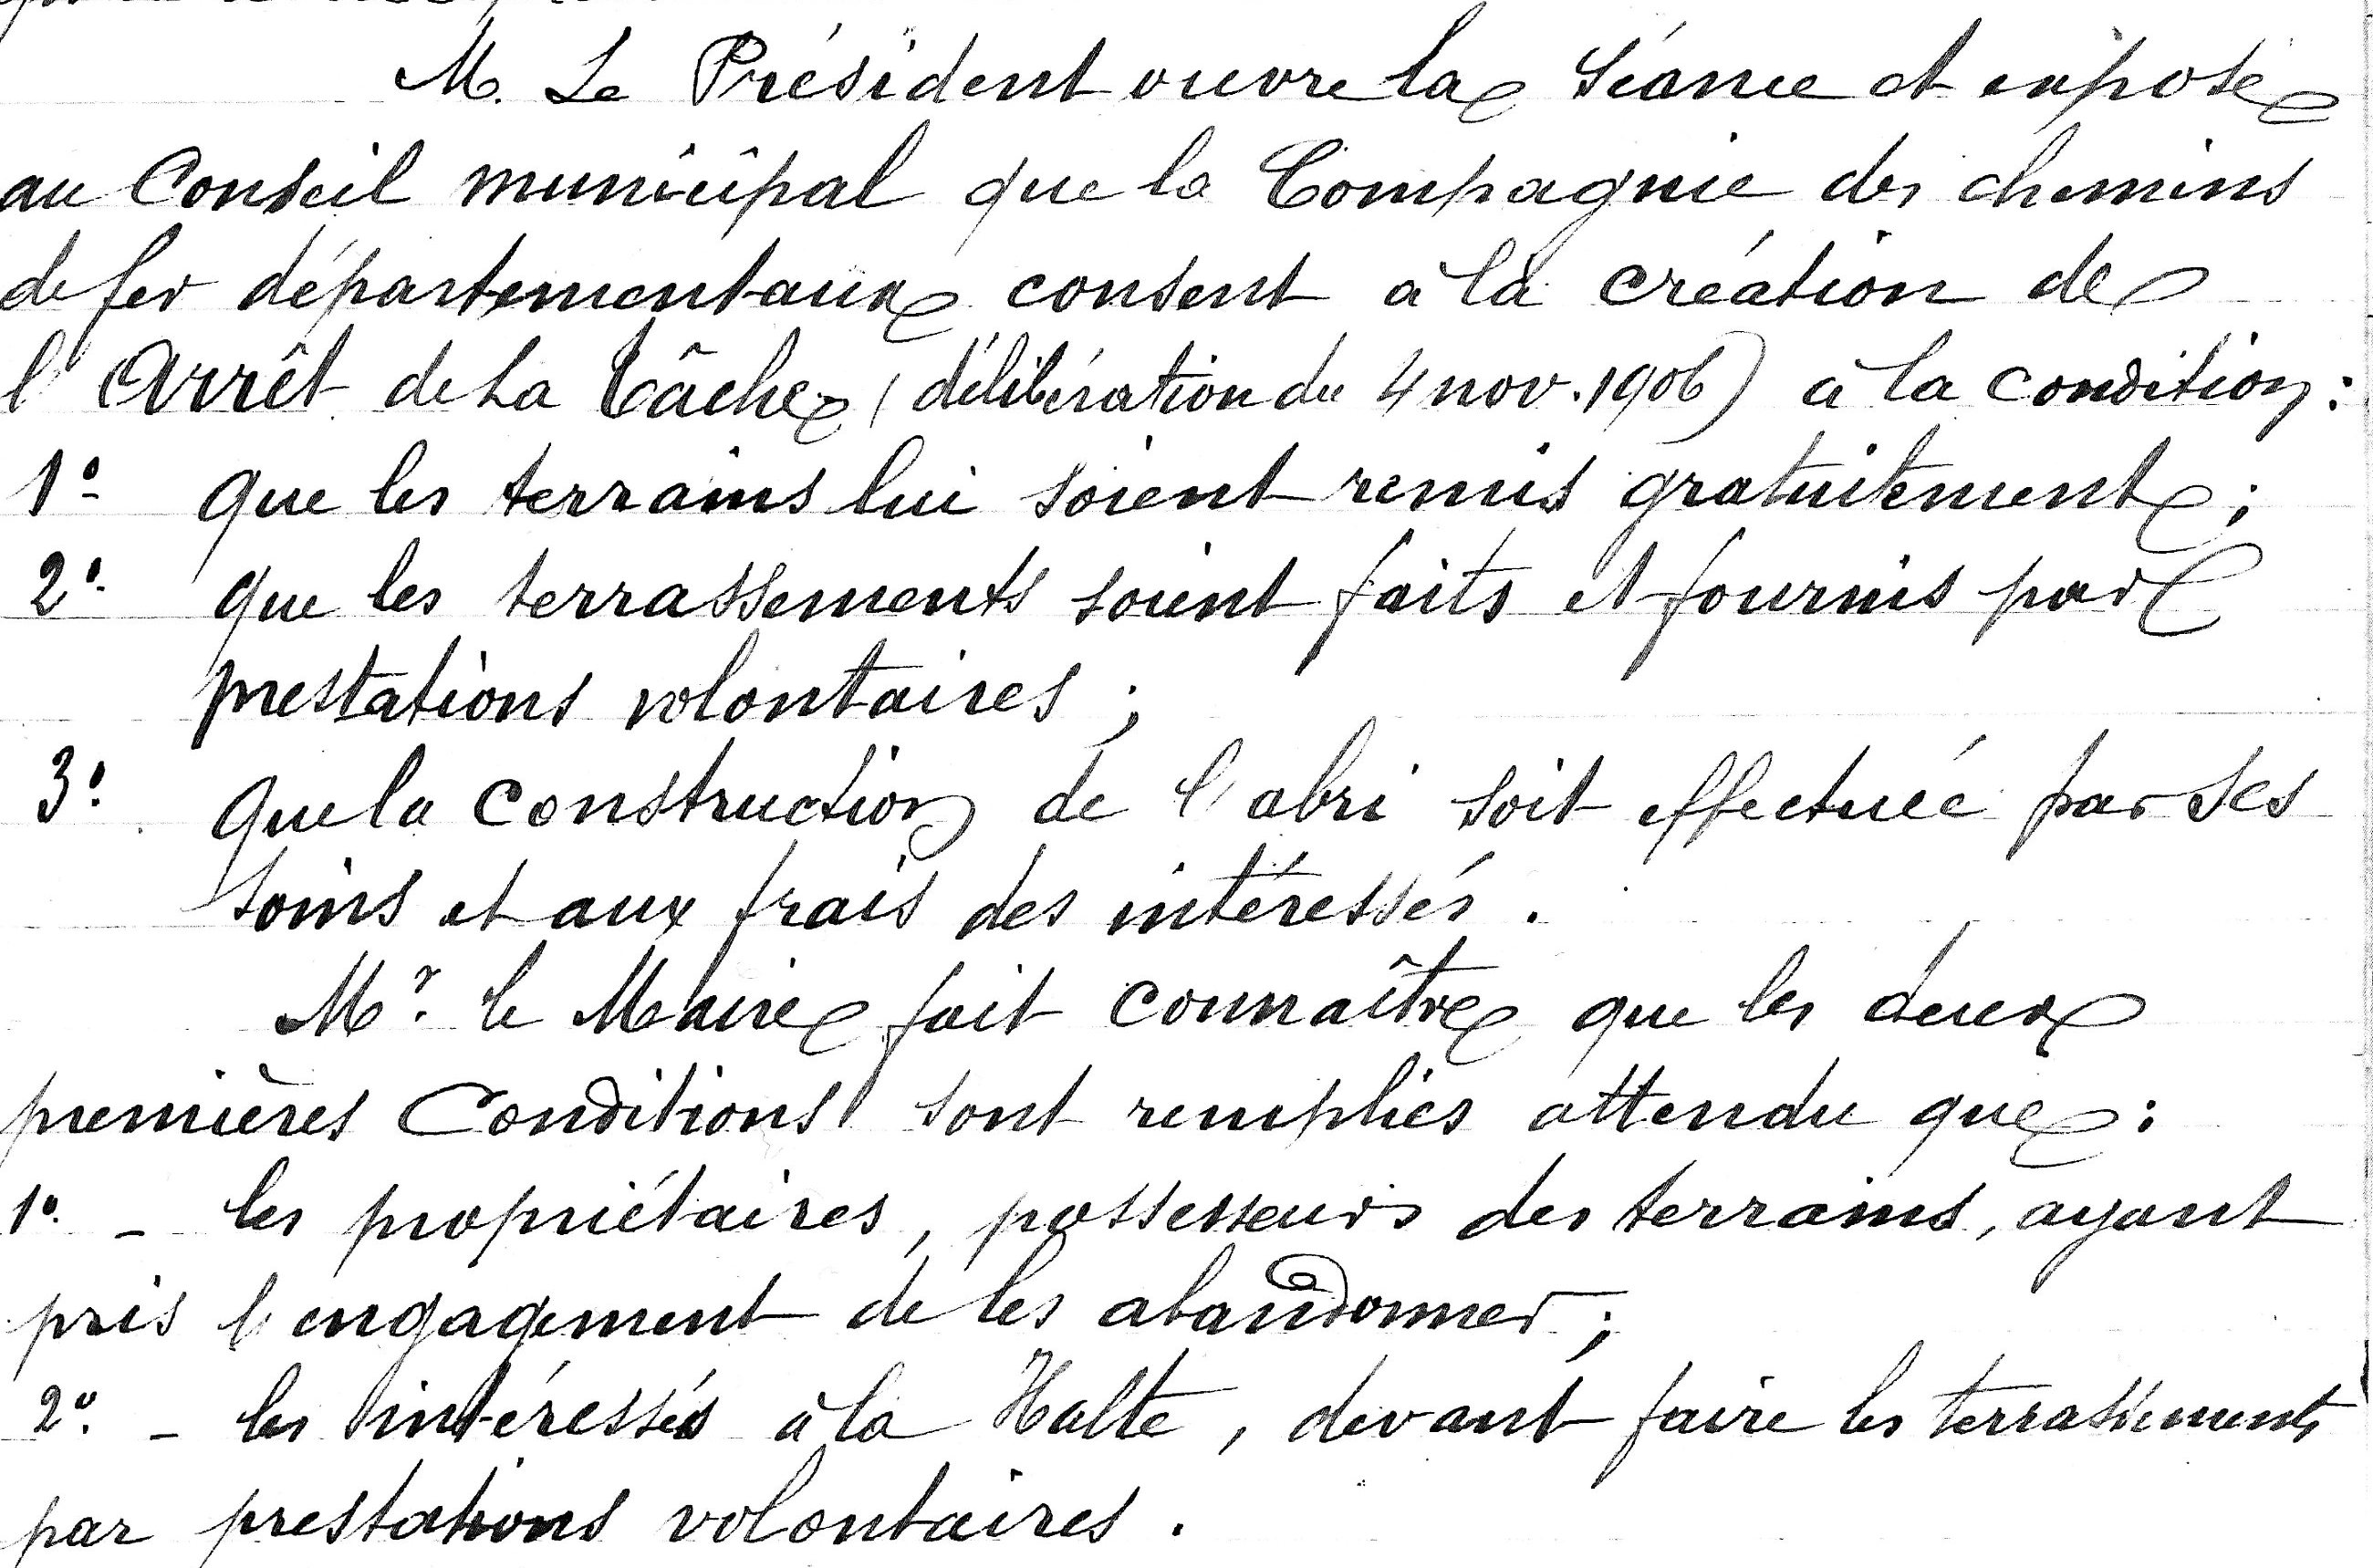 M. Le Président ouvre la Séance et expose
au Conseil municipal que la Compagnie des chemins
de fer départementaux consent à la création de
l'Arrêt de La Tâche (délibération du 4 nov. 1906) à la condition :
1º que les terrains lui soient remis gratuitement ;
2º que les terrassements soient faits et fournis par
prestations volontaires ;
3º que la construction de l'abri soit effectuée par ses
soins et aux frais des intéressés.
Mr. le Maire fait connaître que les deux
premières Conditions sont remplies attendu que :
1º - les propriétaires, possesseurs des terrains, ayant
pris l'engagement de les abandonner ;
2º - les intéressés à la Halte, devant faire les terrassements
par prestations volontaires.